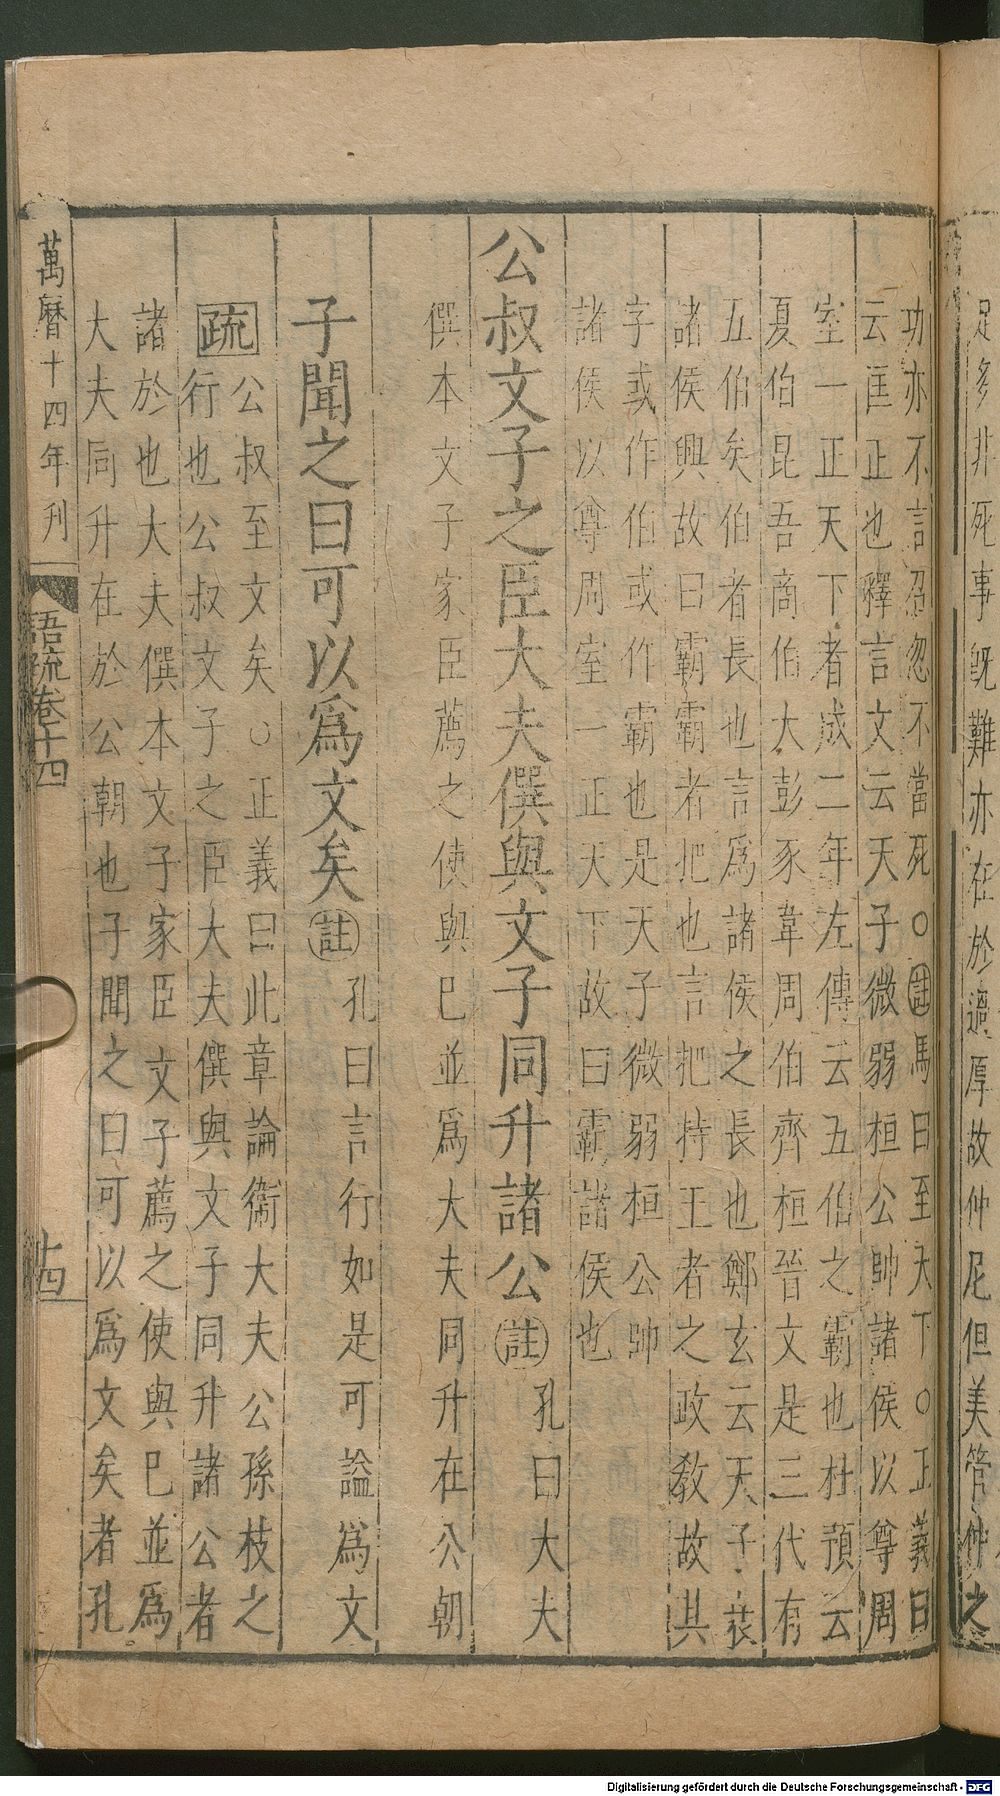 足多非死事既難亦在於過厚故仲尼但美管仲之
功亦不言召忽不當死○註馬曰至天下○正義曰
云匡正也釋言文云天子微弱桓公帥諸侯以尊周
室一正天下者成二年左傳云五伯之霸也杜預云
夏伯昆吾商伯大彭豕韋周伯齊桓晉文是三代有
五伯矣伯者長也言爲諸侯之長也鄭玄云天子衰
諸侯興故曰霸霸者把也言把持王者之政敎故其
字或作伯或作霸也是天子微弱桓公帥
諸侯以尊周室一正天下故曰霸諸侯也
公叔文子之臣大夫僎與文子同升諸公註孔曰大夫
僎本文子家臣薦之使與巳並爲大夫同升在公朝
子聞之曰可以爲文矣註孔曰言行如是可謚爲文
疏公叔至文矣○正義曰此章論衞大夫公孫枝之
行也公叔文子之臣大夫僎與文子同升諸公者
諸於也大夫僎本文子家臣文子薦之使與巳並爲
大夫同升在於公朝也子聞之曰可以爲文矣者孔
萬曆十四年刋
語疏卷十四
十四
Digitalisierung gefördert durch die Deutsche Forschungsgemeinschaft - DFG